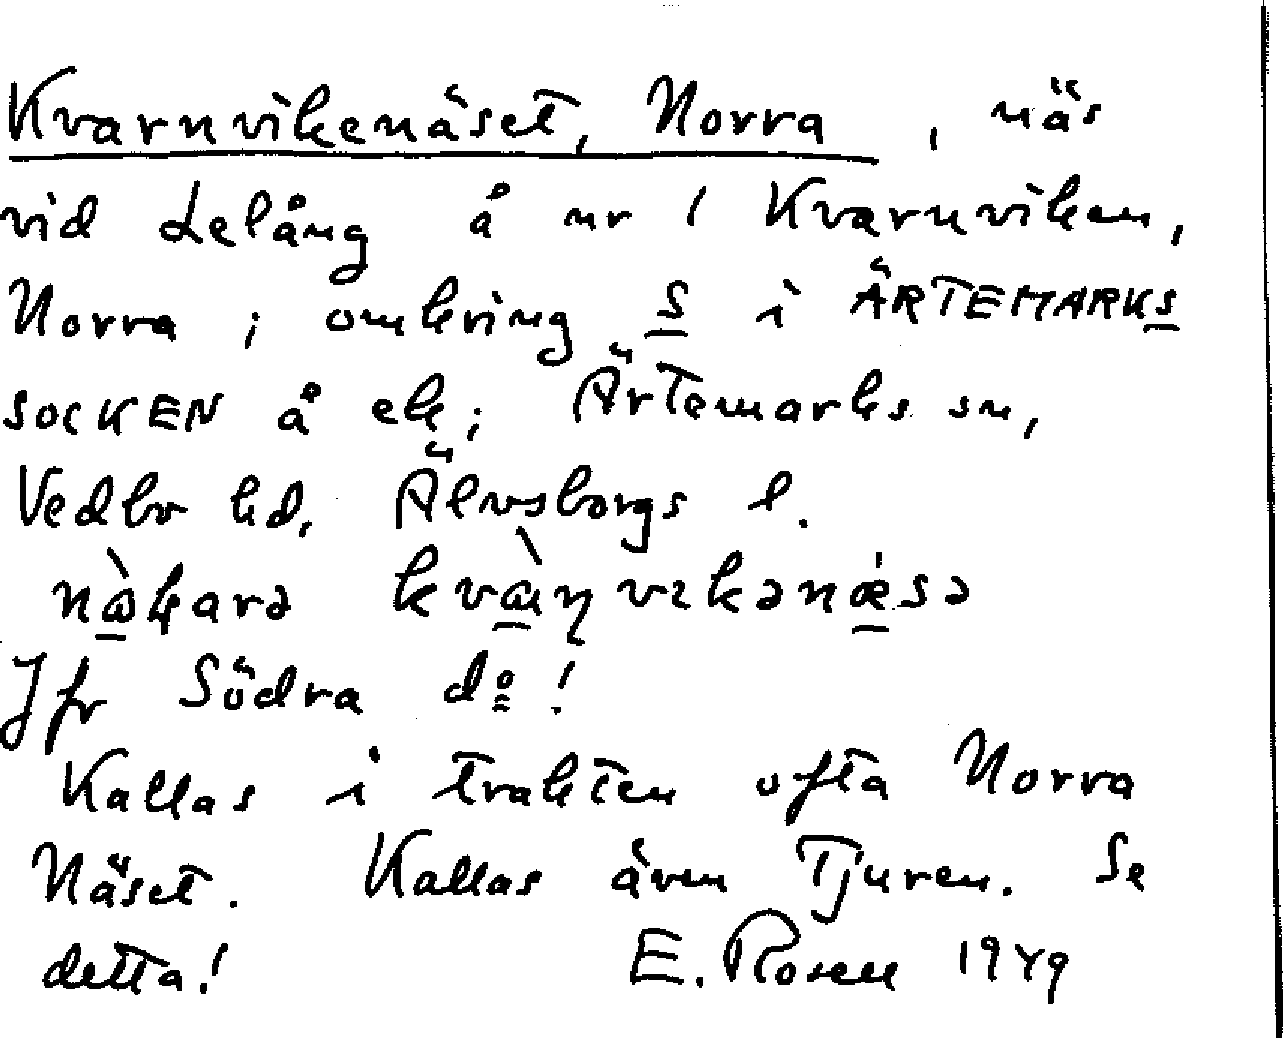 Kvarnvikenäset, Norra, näs
vid Lelång å nr 1 Kvarnviken,
Norra; omkring S i ÄRTEMARKS
SOCKEN å ek; Ärtemarks sn,
Vedbo hd, Älvsborgs l.
Jfr Södra do!
Kallas i trakten ofta Norra
Näset. Kallas även Tjuren. Se
detta! E. Rosen 1949